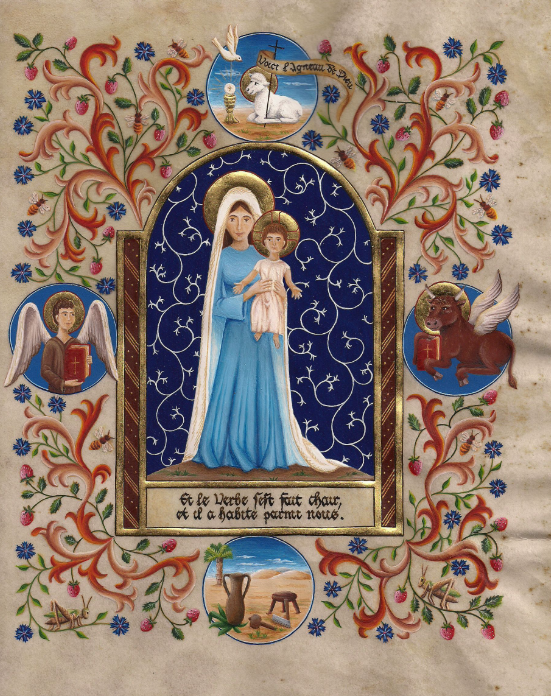 Voici l'Agneau de Dieu
Et le Verbe s'est fait chair,
et il a habité parmi nous.